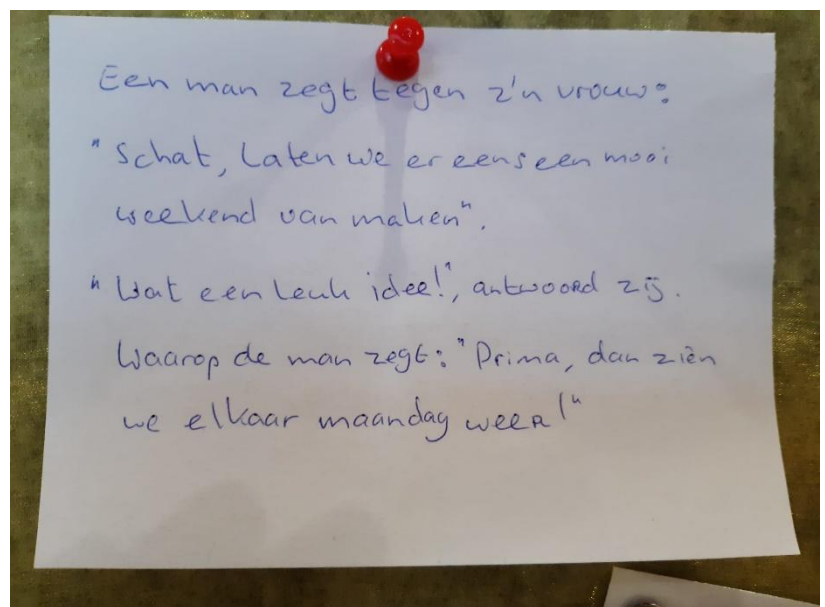 Een man zegt tegen z'n vrouw:
"Schat, laten we er eens een mooi
weekend van maken".
"Wat een leuk idee!", antwoord zij.
Waarop de man zegt: "Prima, dan zien
we elkaar maandag weer!"